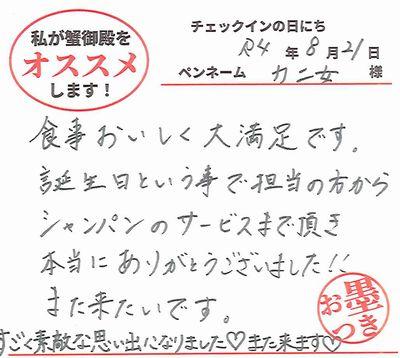 私が蟹御殿を
オススメ
します！
チェックインの日にち
R4 年 8 月 21 日
ペンネーム カニ女 様
食事おいしく大満足です。
誕生日という事で担当の方から
シャンパンのサービスまで頂き
本当にありがとうございました!!
また来たいです。
すごく素敵な思い出になりました♡また来ます♡
お墨つき